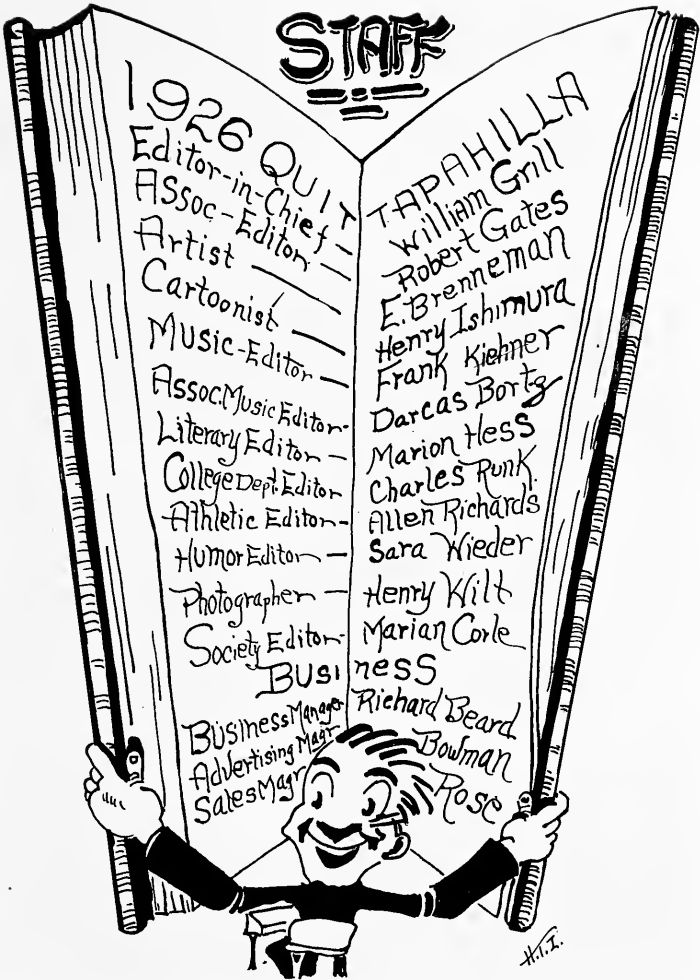 STAFF
1926 QUITTAPAHILLA
Editor-in-Chief – William Grill
Assoc-Editor – Robert Gates
Artist — E. Brenneman
Cartoonist — Henry Ishimura
Music-Editor – Frank Kiehner
Assoc. Music Editor- Darcas Bortz
Literary Editor – Marion Hess
College Dept. Editor Charles Runk.
Athletic Editor- Allen Richards
Humor Editor – Sara Wieder
Photographer – Henry Wilt
Society Editor- Marian Corle
Business
Business Manager Richard Beard
Advertising Magr. Bowman
Sales Magr Rose
H.I.I.